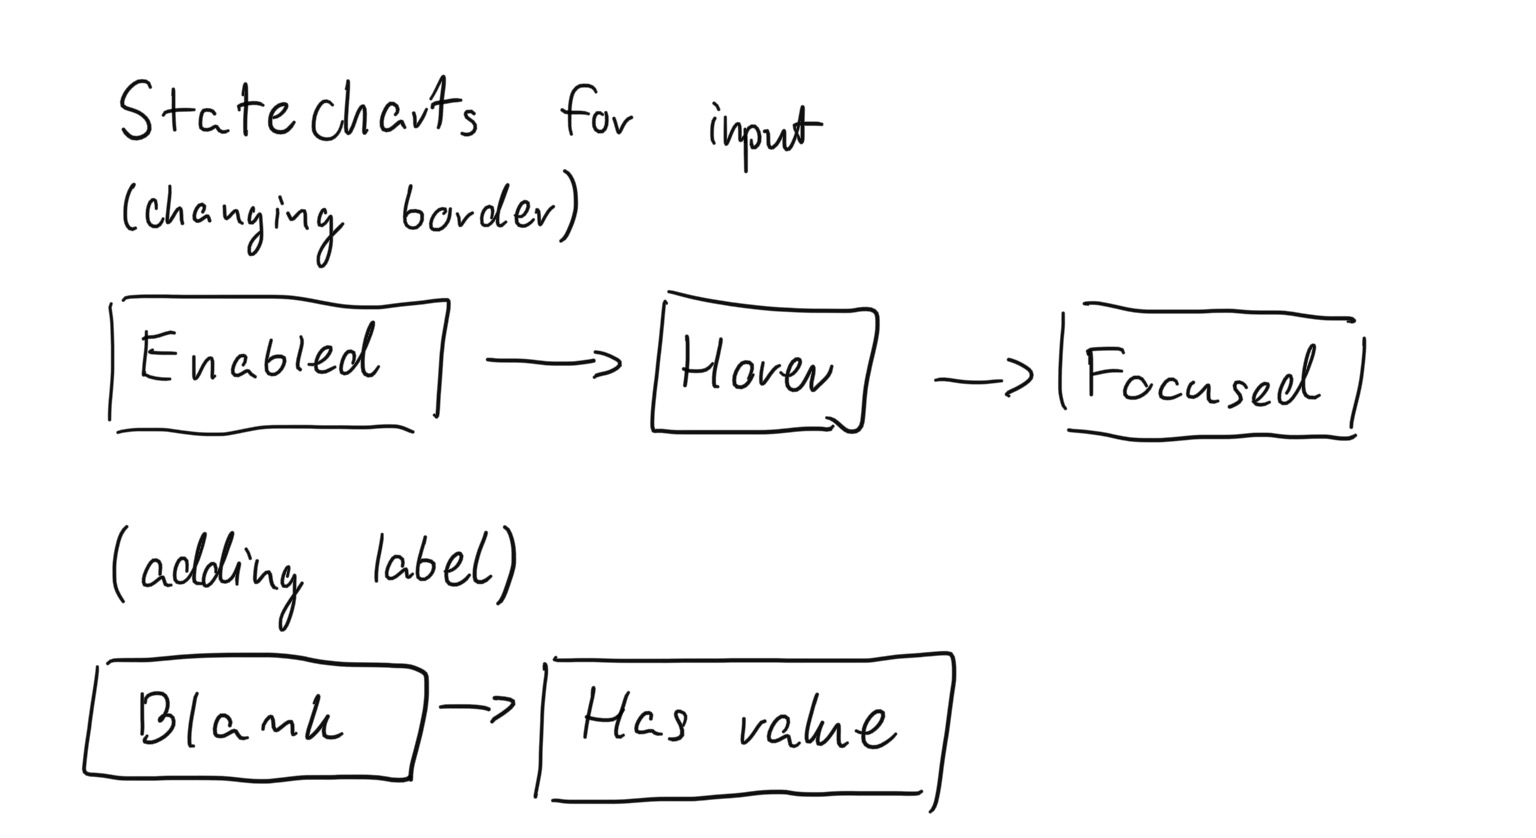 Statecharts for input
(changing border)
Enabled → Hover → Focused
(adding label)
Blank → Has value